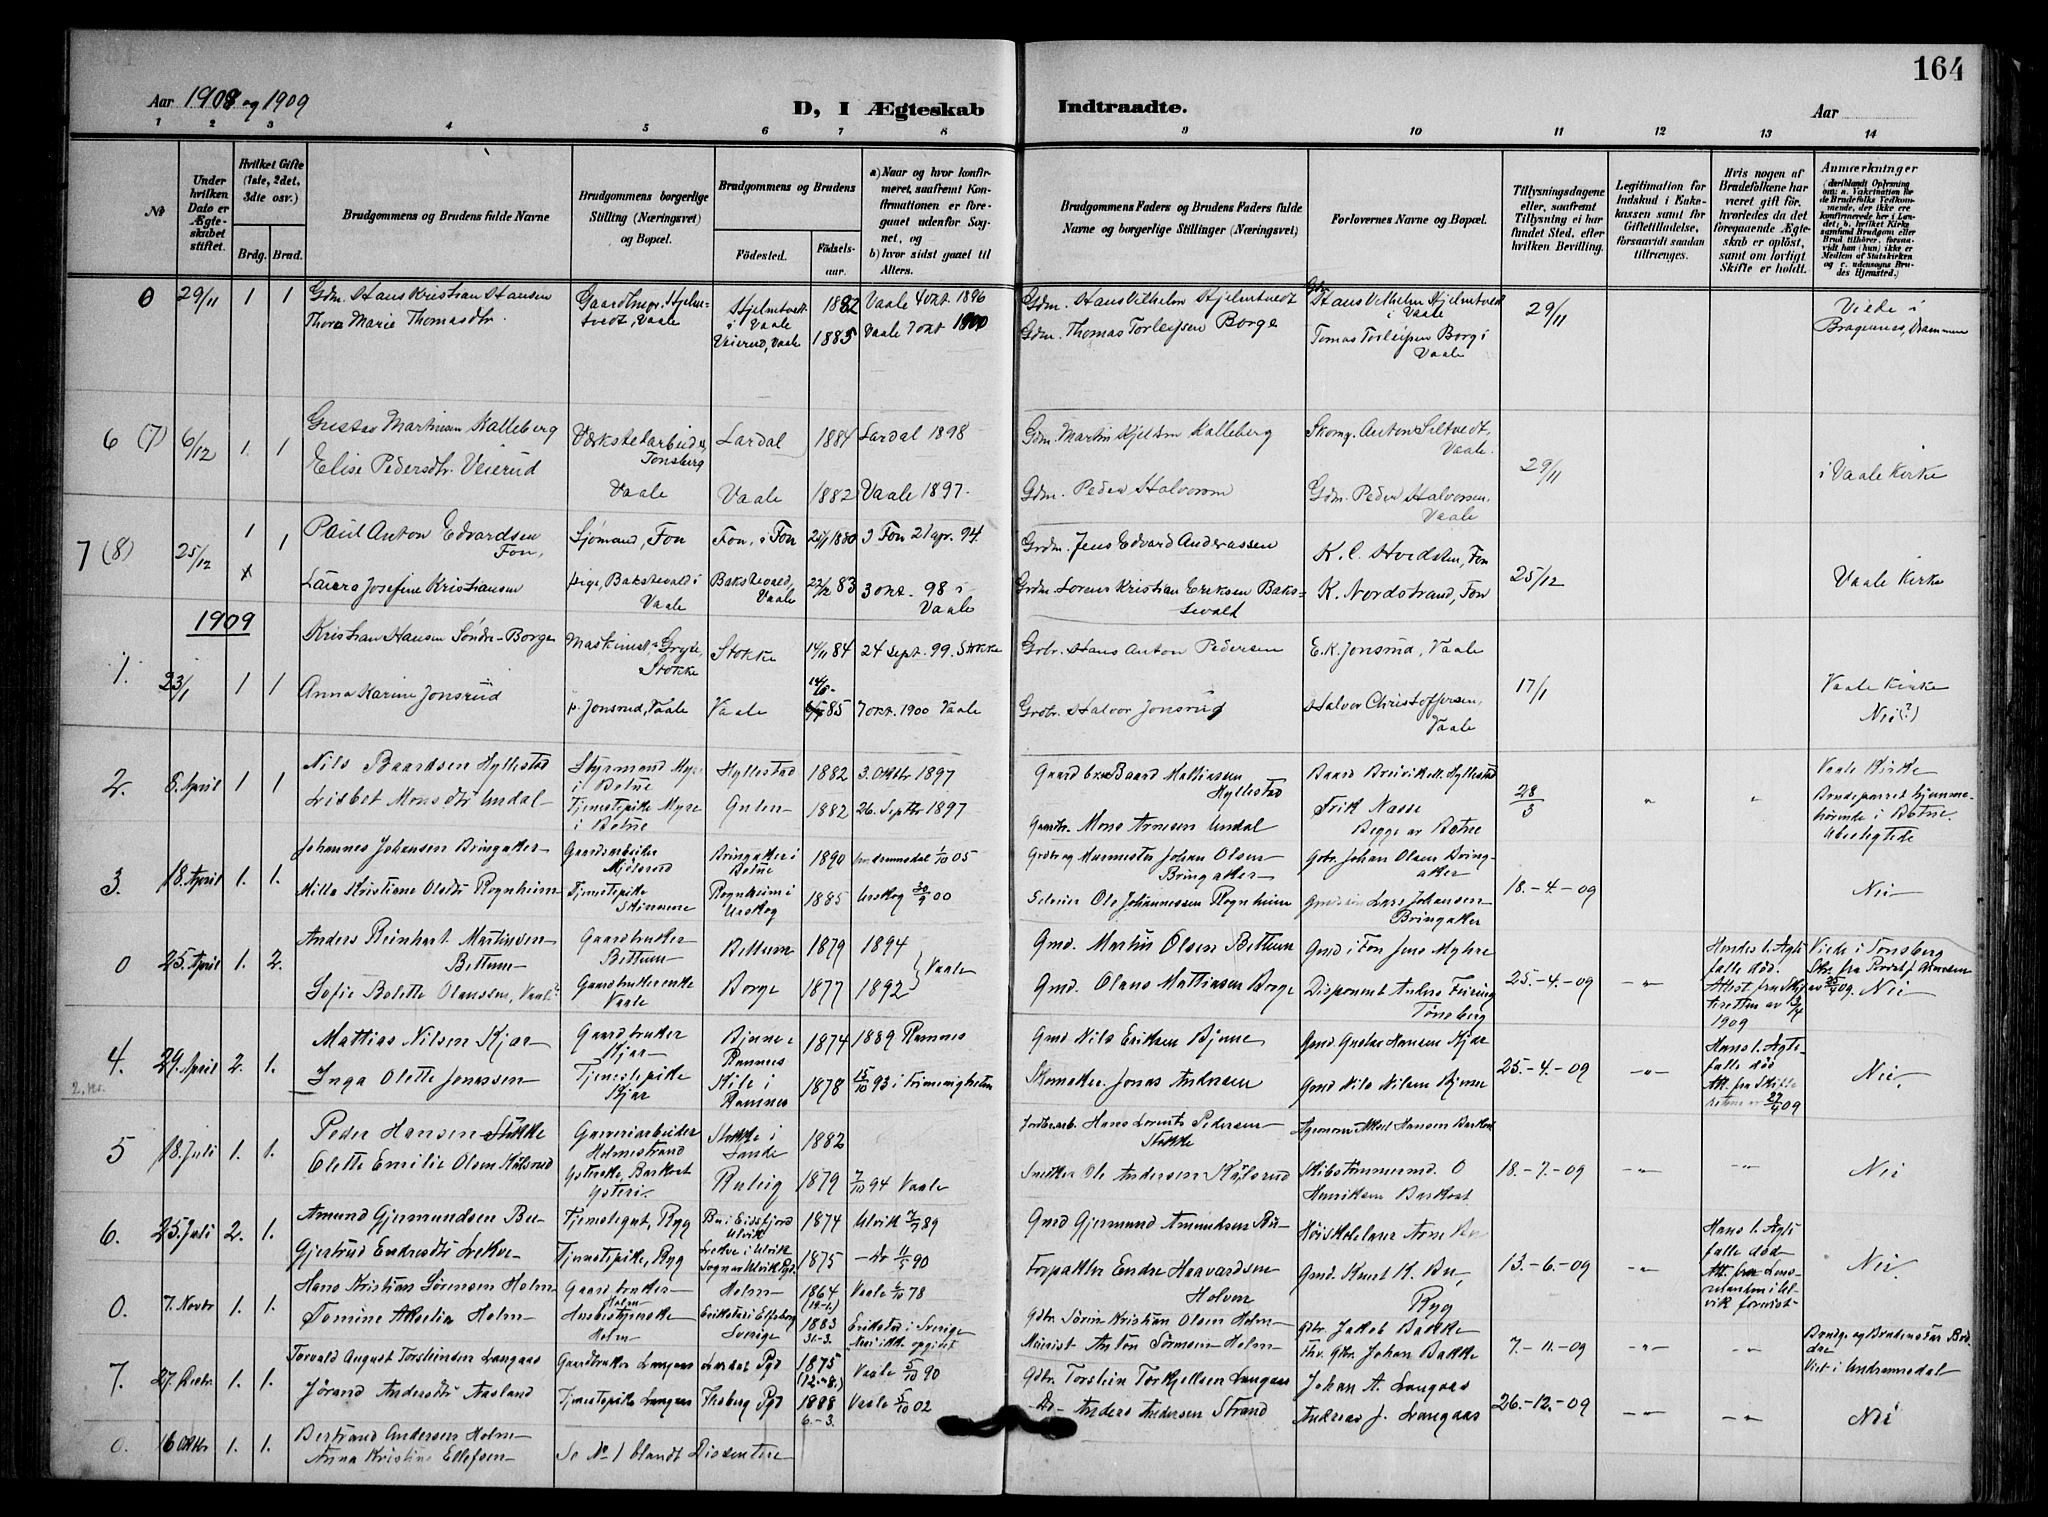 164
Aar 1908 og 1909
D, I Ægteskab Indtraadte.
Aar
1 2 3 4 5 6 7 8 9 10 11 12 13 14
Nr
Under hvilken Dato er Ægteskabet stiftet.
Hvilket Gifte (1ste, 2det, 3die osv.)
Brdg. Brud.
Brudgommens og Brudens fulde Navne
Brudgommens borgerlige Stilling (Næringsvei) og Bopæl.
Brudgommens og Brudens
Fødested. Fødselsaar.
a) Naar og hvor konfirmeret, saafremt Konfirmationen er foregaaet udenfor Sognet, og
b) hvor sidst gaaet til Alters.
Brudgommens Faders og Brudens Faders fulde Navne og borgerlige Stillinger (Næringsvei)
Forlovernes Navne og Bopæl.
Tillysningsdagene eller, saafremt Tillysning ei har fundet Sted, efter hvilken Bevilling.
Legitimation for Indskud i Enkekassen samt for Giftetilladelse, forsaavidt saadan tiltrænges.
Hvis nogen af Brudefolkene har været gift før, hvorledes da det foregaaende Ægteskab er opløst, samt om lovligt Skifte er holdt.
Anmærkninger (deriblandt Oplysning om: a. Vakcination for de Brudefolks Vedkommende, der ikke ere konfirmerede her i Landet; b. hvilket Kirkesamfund Brudgom eller Brud tilhører, forsaavidt han (hun) ikke er Medlem af Statskirken og c. udensogns Brudes Hjemsted.)
0 29/11 1 1 Gdm. Hans Kristian Hansen
Gaardbruger, Hjelmtvedt, Vaale
Hjelmtvedt i Vaale 1882 Vaale 4 okt 1896
Gdm. Hans Vilhelm Hjelmtvedt
Gdm. Hans Vilhelm Hjelmtvedt i Vaale
29/11
Viede i Bragernes, Drammen
Thora Marie Thomasdtr.
Veierud, Vaale 1885 Vaale 7 okt 1900
Gdm. Thomas Torleifsen Borge
Tomas Torleifsen Borg i Vaale
6 (7) 6/12 1. 1 Gustav Martinsen Kalleberg
Værkstedarbeider, Tønsberg
Lardal 1884 Lardal 1898
Gdm. Martin Kjelsen Kalleberg
Skomg. Anton Siltvedt, Vaale.
29/11
i Vaale Kirke
Elise Pedersdtr. Veierud
Vaale Vaale 1882 Vaale 1897.
Gdm. Peder Halvorsen
Gdm. Peder Halvorsen, Vaale
7 (8) 25/12 1 1 Paul Anton Edvardsen Fon,
Sjømand, Fon Fon, i Fon 1880 I Fon 21 apr. 94.
Grdm. Jens Edvard Andreassen
K. C. Hvidsten, Fon
25/12
Vaale Kirke
Laura Josefine Kristiansen
pige, Bakstevald i Vaale Bakstevald, Vaale 22/12 83 3 okt. 98 i Vaale
Grdm. Lorens Kristian Eriksen Bakstevald
K. Nordstrand, Fon
1909
1. 23/1 1 1 Kristian Hansen Søndre-Borge
Maskinist, Stokke Stokke 14/11 84 24 Sept. 99. Stokke
Grbr. Hans Anton Pedersen
E. K. Jonsrud, Vaale
17/1
Vaale Kirke
Nei (?)
Anna Karine Jonsrud
p. Jonsrud, Vaale Vaale 85 7 okt. 1900 Vaale
Grdbr. Halvor Jonsrud
Halvor Christoffersen, Vaale
2. 8. April 1 1 Nils Baardsen Hyllestad
Styrmand Myre i Botne Hyllestad 1882 3. Oktbr 1897
Gaardbr. Baard Mattiasen Hyllestad
Baard Breivik Hyllestad
28/3 " "
Vaale Kirke
Brudeparret hjemmehørende i Botne.
Ubeslegtede
Lisbet Monsdtr Undal
Tjenestepike Myre i Botne Gulen 1882 26. Septbr 1897
Gaardbr. Mons Arnesen Undal
Erik Nasse
Begge av Botne
3. 18. April 1. 1. Johannes Johansen Bringaker
Gaardsarbeider Mjølsrud Bringaker i Botne 1890 Sandemsdal 1/10 05
Grdbr og Murmester Johan Olsen Bringaker
Gbr. Johan Olsen Bringaker
18.-4.-09
Nei
Milla Kristiane Olsdtr Rognheim
Tjenestepike Rognheim i Urskog 1885 Urskog 30/9 00
Selveier Ole Johannessen Rognheim
Lars Johansen Bringaker
0 25. April 1. 2. Anders Reinhart Martinsen Bettum
Gaardbruker Bettum Bettum 1879 1894
Gmd. Martin Olsen Bettum
Gmd i Fon Jens Myhre
25.-4.-09 -"-
Hendes 1. Ægtefælle død. Attest fra Skifteretten av 13/4 1909
Viede i Tønsberg
Nei
Sofie Bolette Olaussen, Vaale
Gaardbrukerenke Vaale Borge 1877 1892 } Vaale
Gmd. Olaus Mattiasen Borge
Disponent Anders Feiring Tønsberg
4. 29. April 2. 1. Mattias Nilsen Kjær
Gaardbruker Kjær Bjune i Ramnes 1874 1889 Ramnes
Gmd Nils Eriksen Bjune
Gmd. Gustav Hansen Kjær
25.-4.-09 -"-
Hans 1. Ægtefælle død
Att. fra Skifteretten av 22/4 09
Nei.
2. nr.
Inga Olette Jonassen
Tjenestepike Kjær Kile i Ramnes 1878 15/10 93 i Frimenigheten
Skomaker Jonas Andersen
Gmd Nils Nilsen Bjune
5 18. Juli 1. 1. Peder Hansen Stokke
Garveriarbeider Holmestrand Stokke i Sande 1882
Jordarb. Hans Lorents Pedersen Stokke
Agronom Aksel Hansen Barkost
18.-7.-09 -"- -"-
Nei
Olette Emilie Olsen Kålsrud
Ysterske, Barkost Ysteri Ruteig 1879 7/10 94 Vaale
Snekker Ole Andersen Kålsrud
Skibstømmermd. O Henriksen Barkost
6. 25. Juli 2. 1. Amund Gjermundsen Bu
Tjenestegut, Ryg Bu i Eidfjord Ulvik 1874 Ulvik 89
Gmd Gjermund Amundsen Bu
Høiskolelærer Arne Bu
13.-6.-09 -"-
Hans 1. Ægtefælle død
Att. fra Lensmanden i Ulvik forevist
Nei.
Gjertrud Endresdtr Lekve
Tjenestepike, Ryg Lekve i Ulvik Sogn av Ulvik Pgd. 1875 -Do- 11/5 90
Forpakter Endre Haavardsen Holven
Gmd. Knut K. Bu, Ryg
0. 7. Novbr 1. 1. Hans Kristian Sørensen Holm
Gaardbruker Holm Holm 1864 Vaale 6/10 78
Gbr. Sørin Kristian Olsen Holm
Gbr. Jakob Bakke
7.-11.-09 -"- -"-
Viet i Undrumsdal
Tomine Akselia Holm
Husbestyrerske Holm Erikstad i Elfsborg Sverige 1883 31-3. Erikstad i Sverige
Murist Anton Sørensen Holm
Fhv. Gbr. Johan Bakke
7. 27. Decbr. 1. 1. Torvald August Torsteinsen Langaas
Gaardbruker Langaas Lardal Pgd 1875 (12.-8.) Vaale 5/10 90
Gbr. Torstein Torkjelsen Langaas
Johan A. Langaas
26.-12.-09 -"- -"-
Nei
Jørand Andersdtr Aasland
Tjenestepike Langaas Pgd 1888 6.-3. Vaale 5/10 02
-Do- Anders Andersen Strand
Andreas J. Langaas
0. 16 Oktbr 1. 1. Bertrand Andersen Holm
Anna Kristine Ellefsen
Se No 1 blandt Dissentere